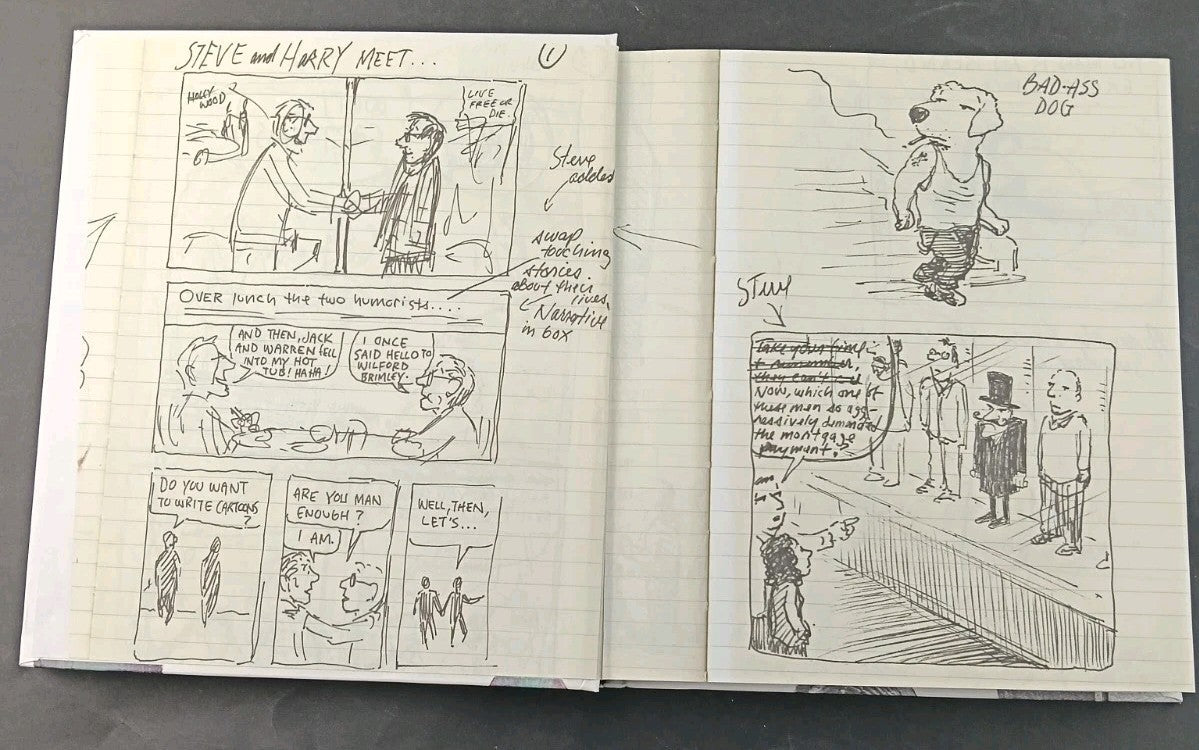 STEVE and HARRY MEET...
1
HOLLY
WOOD
LIVE
FREE OR
DIE
Steve
addes
swap
touching
stories
about their
lives,
Narrative
in box
OVER lunch the two humorists....
AND THEN, JACK
AND WARREN FELL
INTO MY HOT
TUB! HA HA!
I ONCE
SAID HELLO TO
WILFORD
BRIMLEY.
DO YOU WANT
TO WRITE CARTOONS
?
ARE YOU MAN
ENOUGH?
I AM.
WELL, THEN,
LET'S...
BAD-ASS
DOG
Take your time
remember,
they can't
Now, which one of
these men so agg-
ressively demanded
the mortgage
payment?